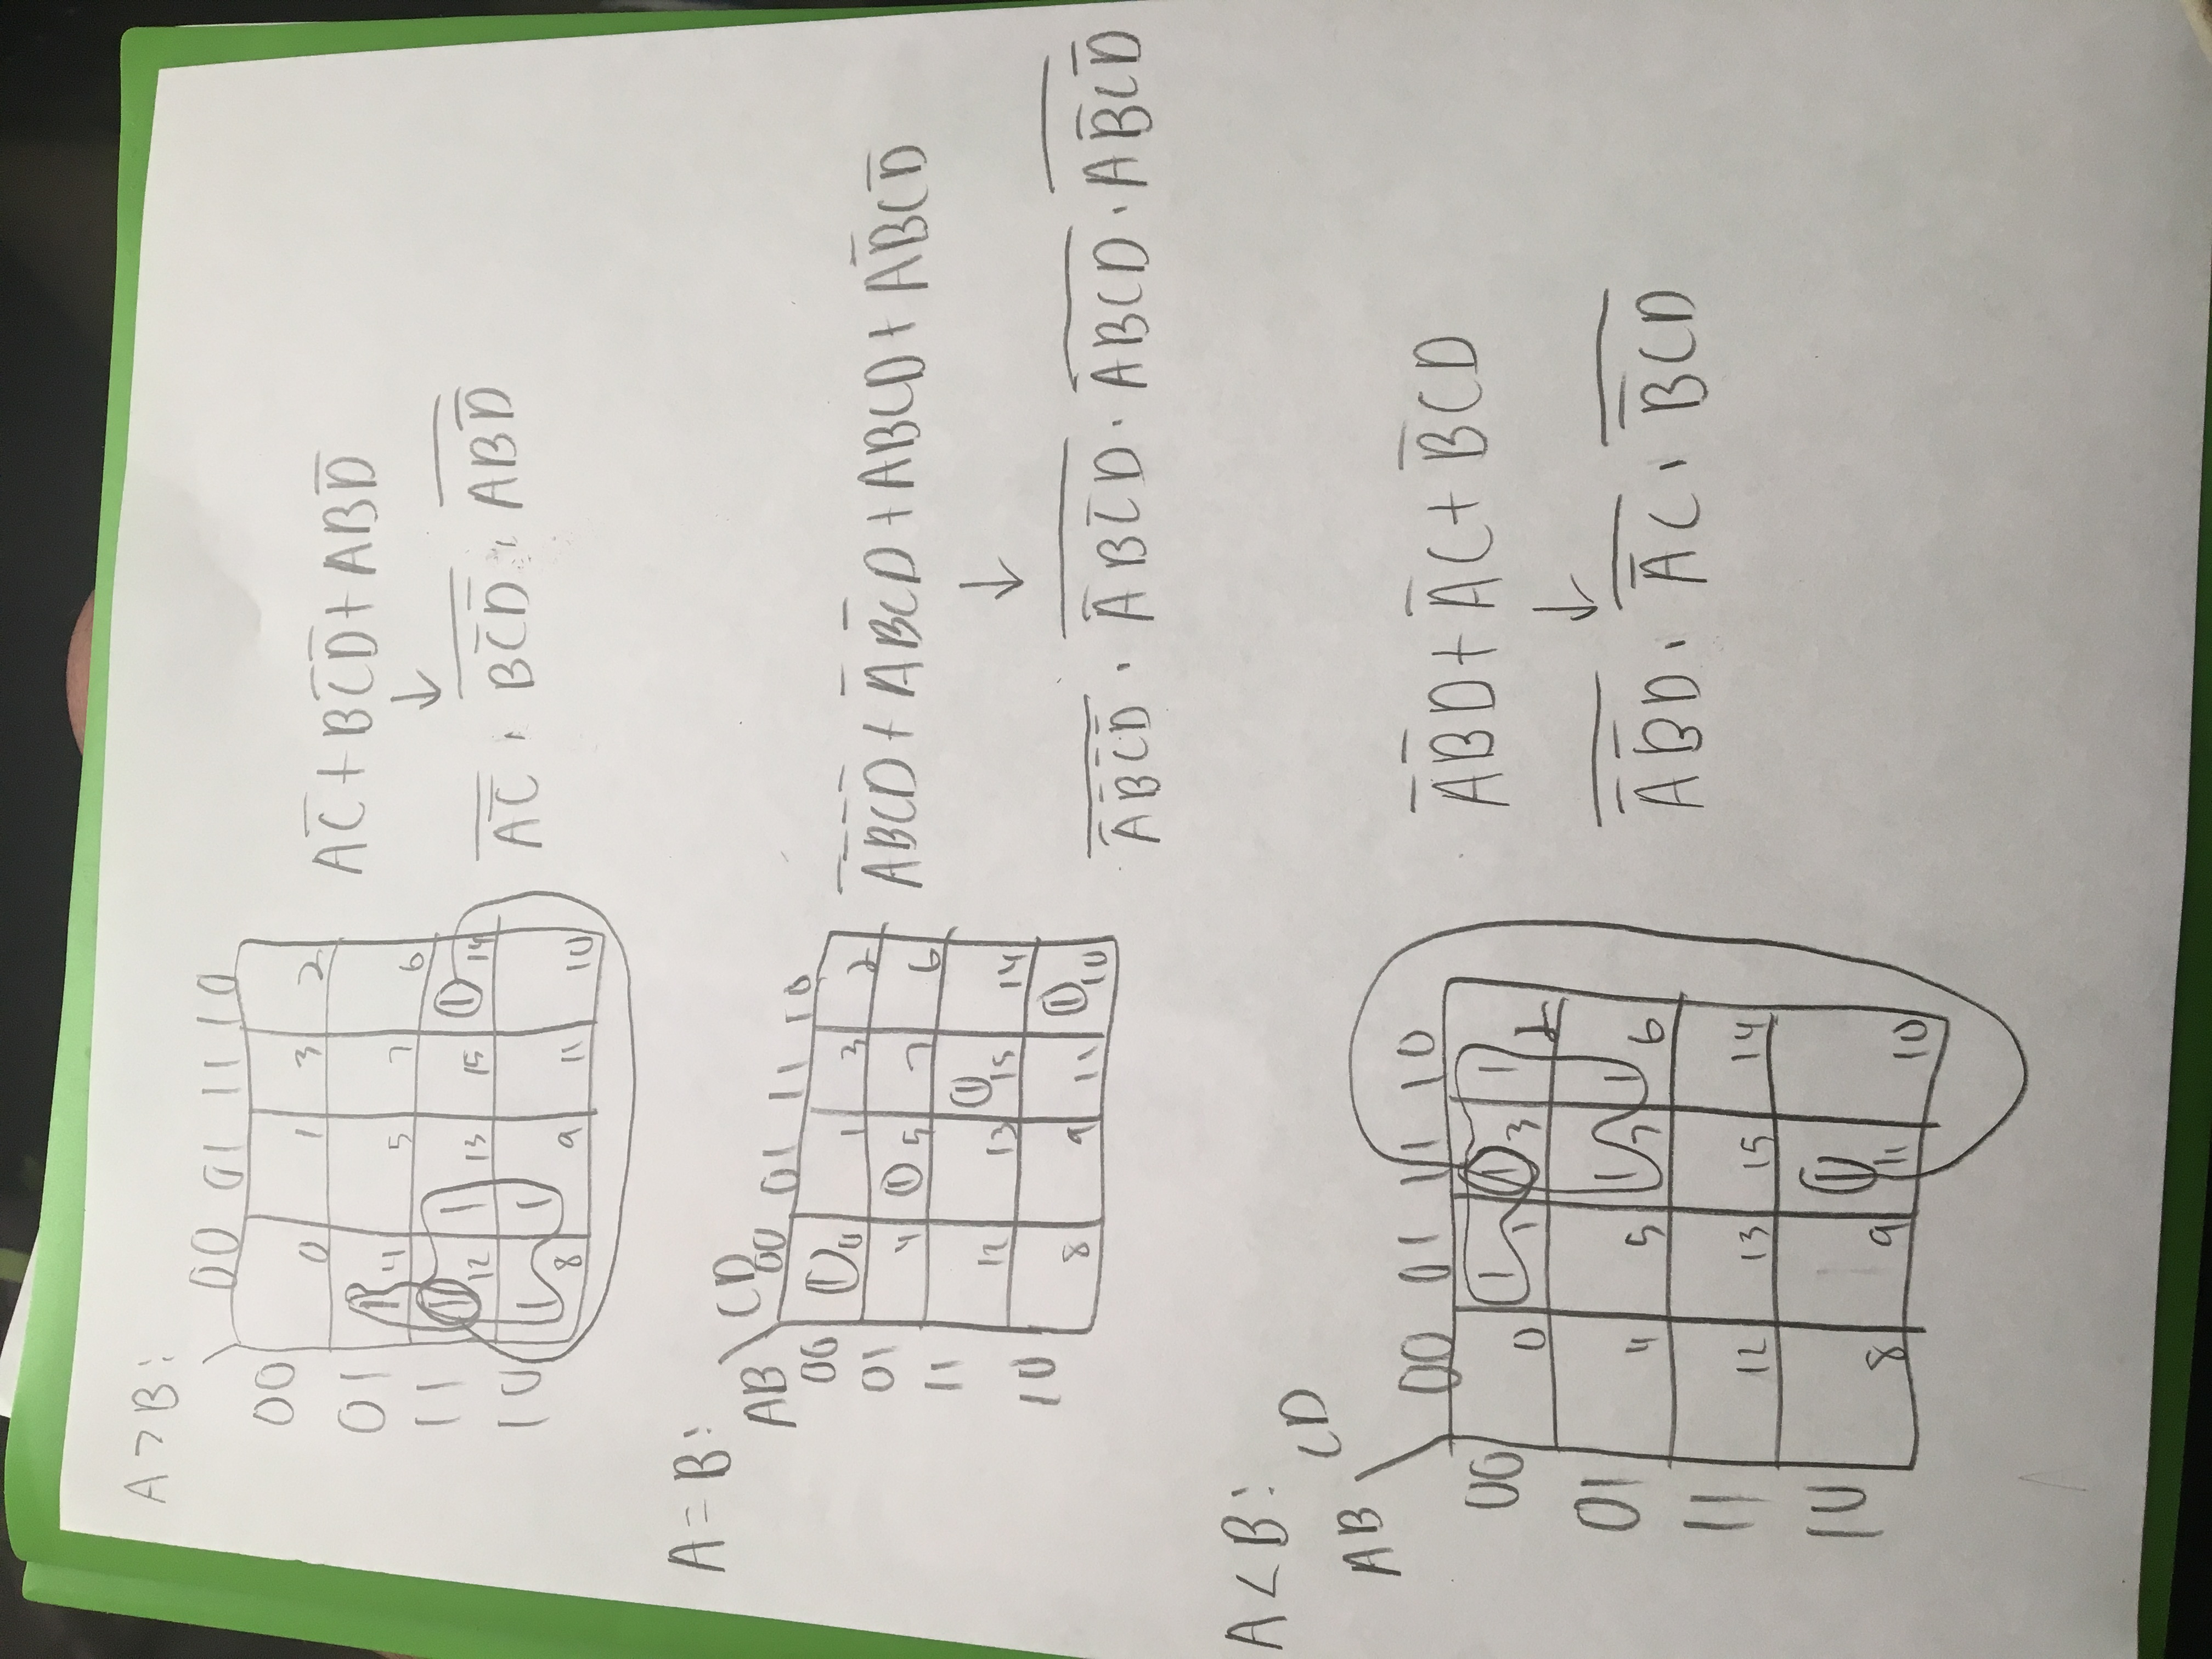 A > B:
00 01 11 10
00 0 1 3 2
01 1 4 5 7 6
11 1 12 1 13 15 1 14
10 1 8 1 9 11 10
AC̅ + BC̅D̅ + ABD̅
↓
\overline{AC̅} · \overline{BC̅D̅} · \overline{ABD̅}
A = B:
AB \ CD 00 01 11 10
00 1 0 1 3 2
01 4 1 5 7 6
11 12 13 1 15 14
10 8 9 11 1 10
A̅B̅C̅D̅ + A̅BC̅D + ABCD + AB̅CD̅
↓
\overline{A̅B̅C̅D̅} · \overline{A̅BC̅D} · \overline{ABCD} · \overline{AB̅CD̅}
A < B:
CD
AB
00 01 11 10
00 0 1 1 1 3 1 2
01 4 5 1 7 1 6
11 12 13 15 14
10 8 9 1 11 10
A̅B̅D + A̅C + B̅CD
↓
\overline{A̅B̅D} · \overline{A̅C} · \overline{B̅CD}